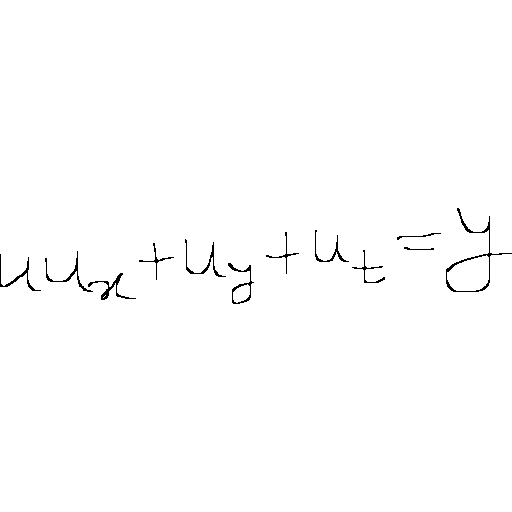 $u u_x + u_y + u_t = y$